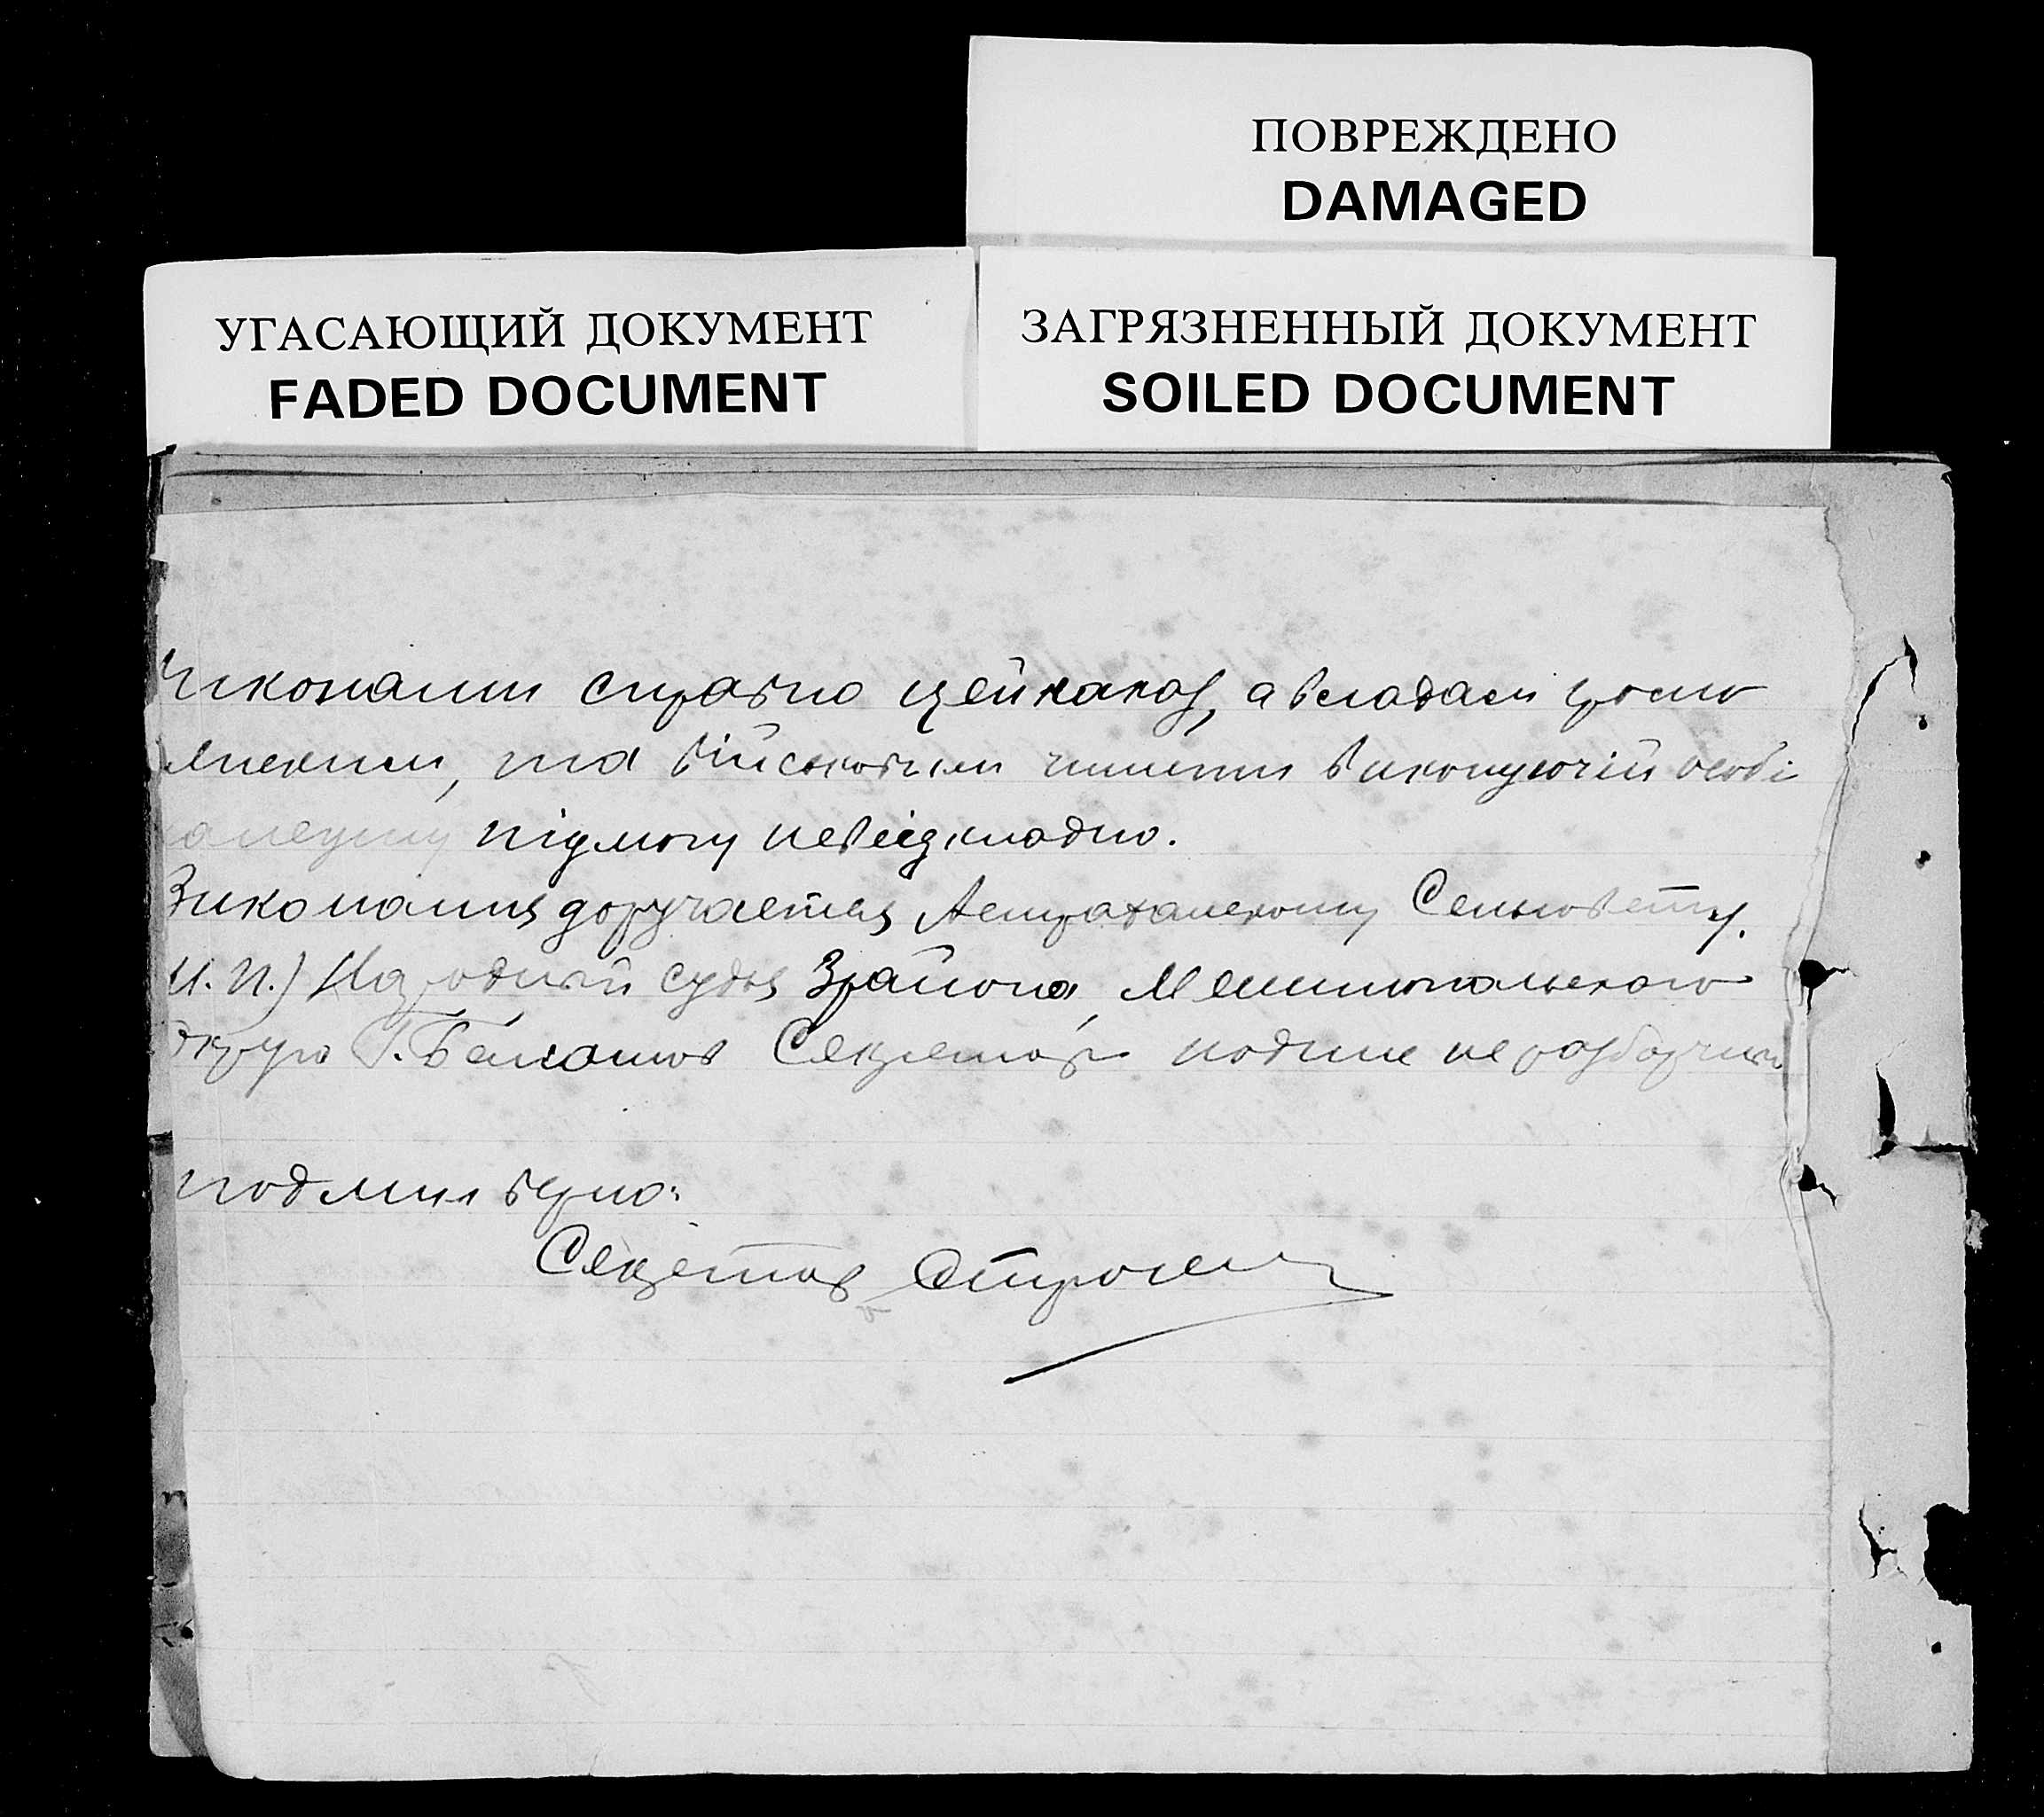 ПОВРЕЖДЕНО
DAMAGED
УГАСАЮЩИЙ ДОКУМЕНТ
FADED DOCUMENT
ЗАГРЯЗНЕННЫЙ ДОКУМЕНТ
SOILED DOCUMENT
справно цей наказ, а владам
та військовим чинити виконуючій особі
підмогу невідкладно.
Виконання доручається Астраханскому Сельсовету.
М.П.) Народный судья 3 района, Мелитопольского
округа Г. Балашов Секретарь подпис неразборчив
подлин верно:
Секретарь